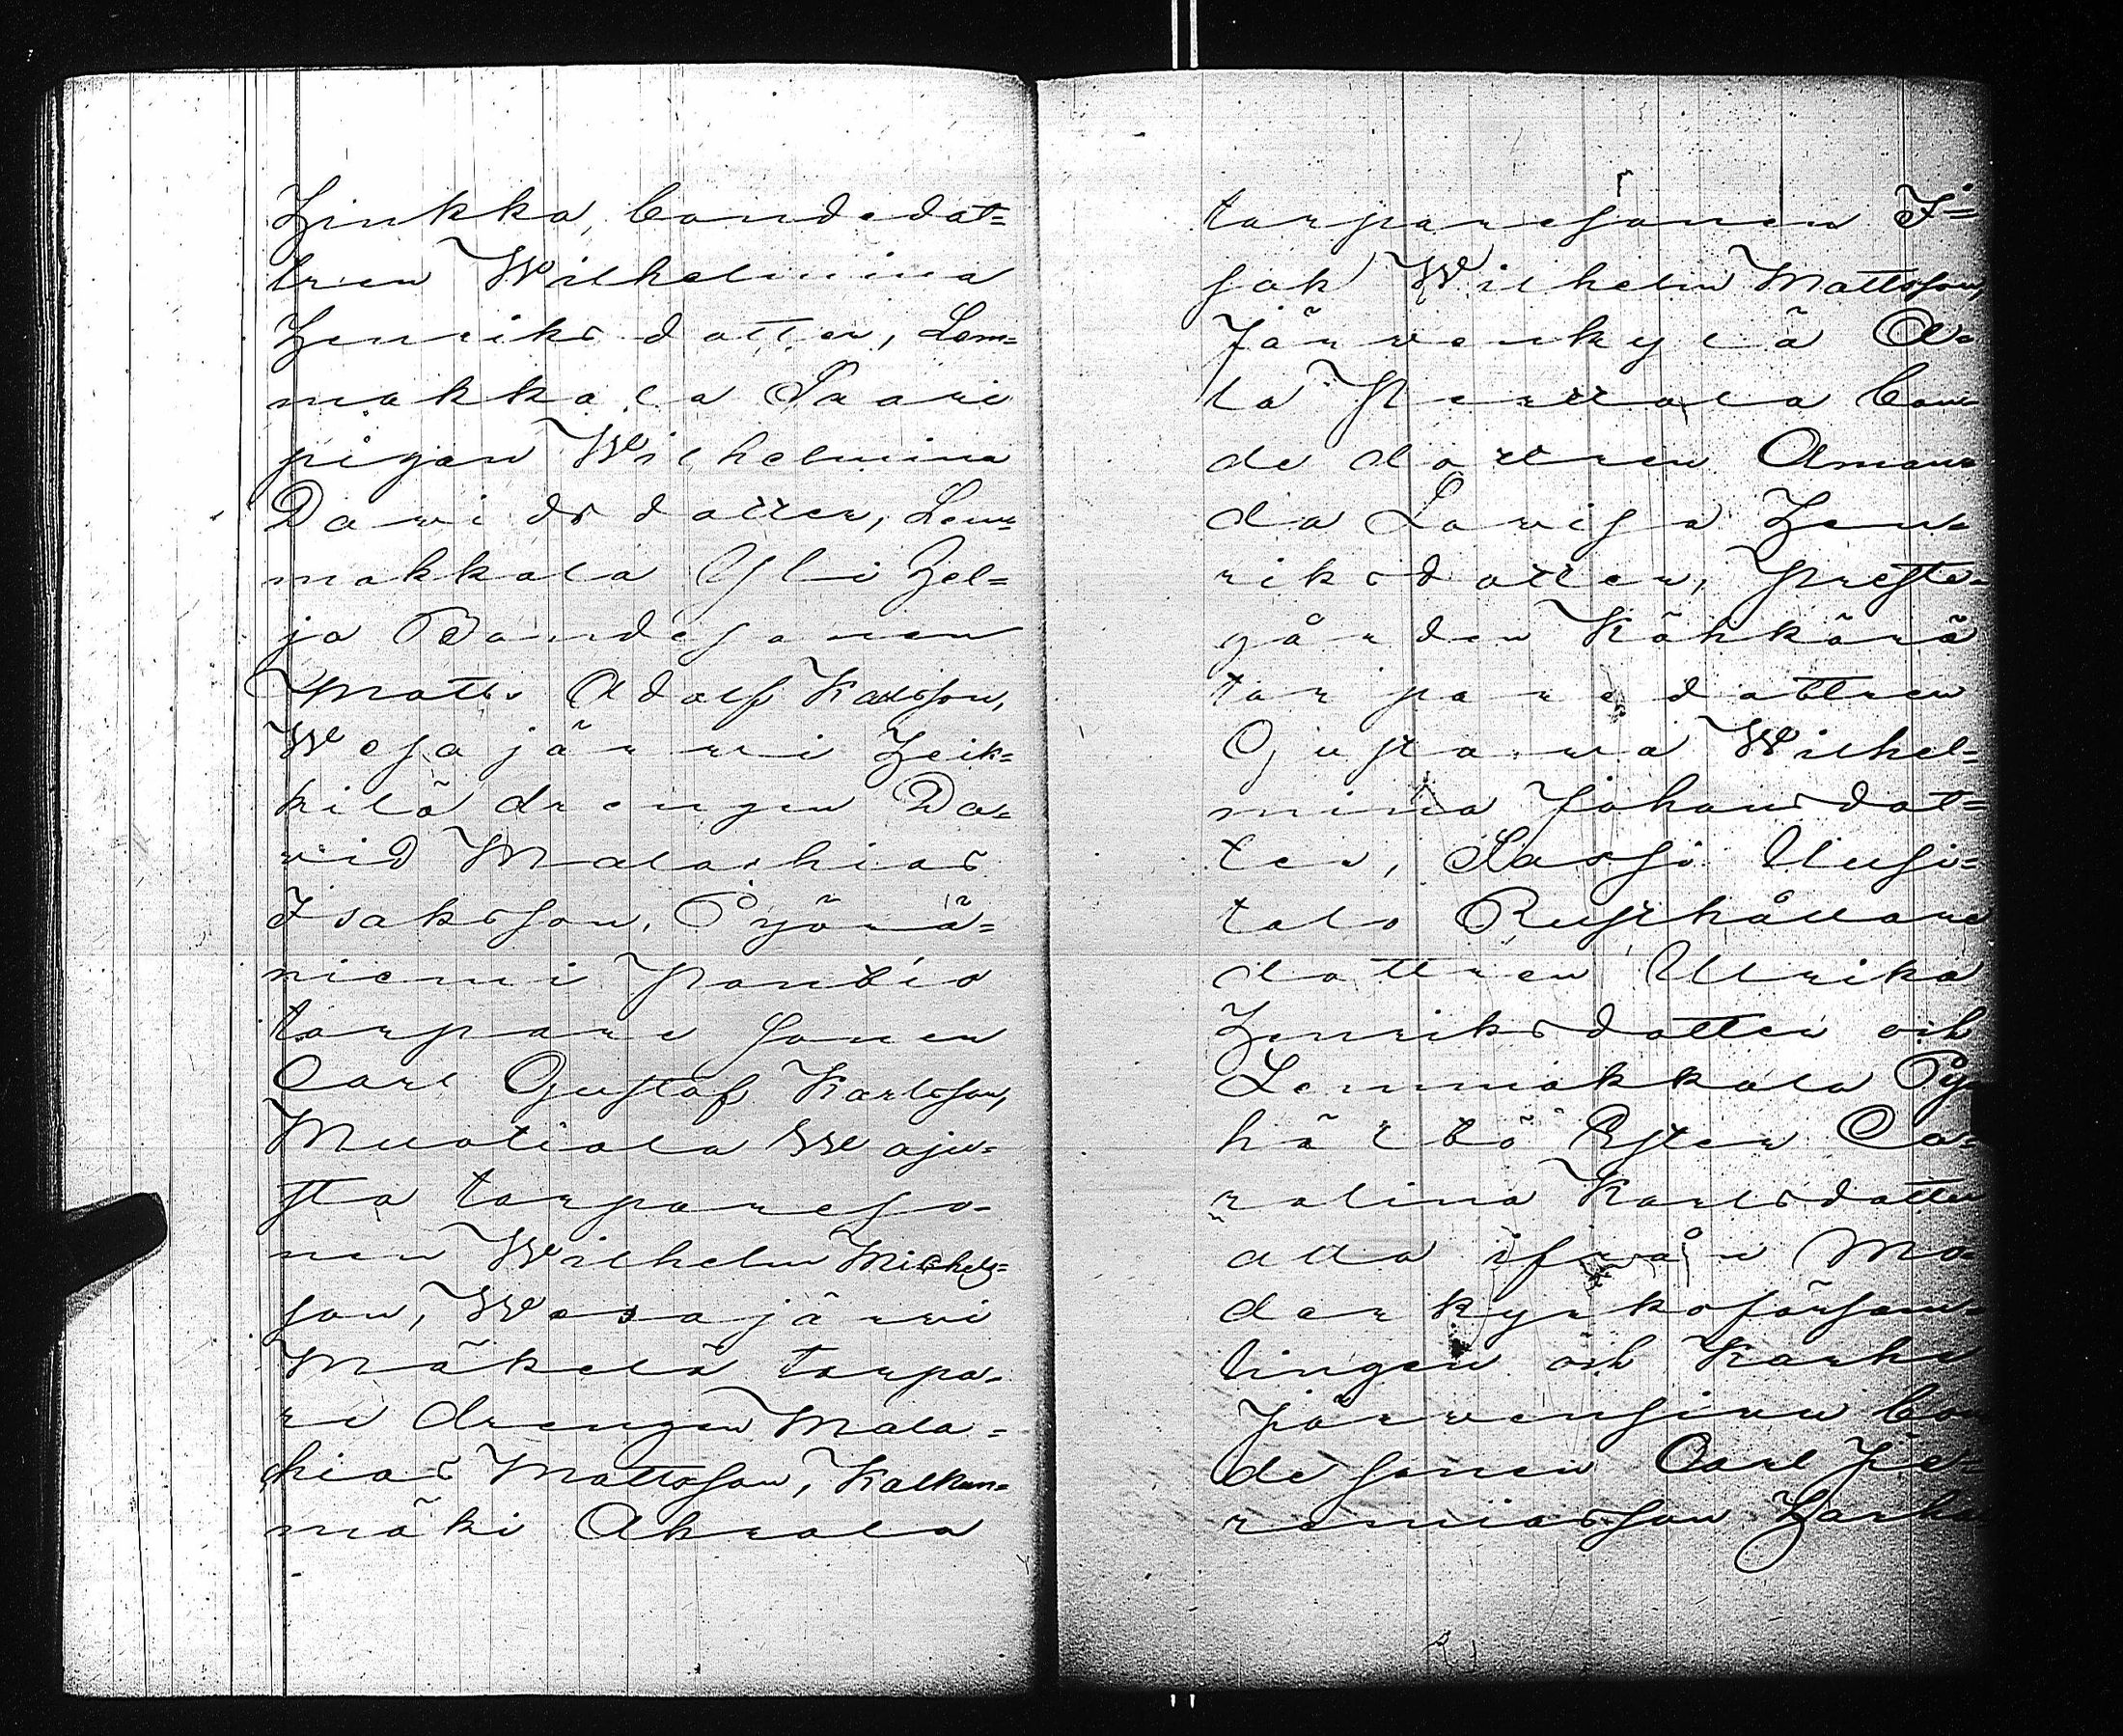 Hinkka, bondedot=
tren Wilhelmina
Henriksdotter, Lem=
makkala Saari
pigan Wilhelmina
Davidsdotter, Lem=
makkala Yli Hel=
jo Bondesonen
Matts Adolf Karlsson,
Wesajärvi Heik=
kilä drengen Da=
vid Malachias
Isaksson, Pyörä=
niemi Pontio
torpare sonen
Carl Gustaf Karlsson,
Muotiala Waju=
sta torpareso-
nen Wilhelm Michels=
son, Wesajärvi
Mäkelä torpa-
re drengen Mala=
chias Mattsson, Kalkun=
mäki Ahrola
torparesonen I=
sak Wilhelm Mattsson,
Järvenkylä A=
la Perttala bon=
de dottren Aman=
da Lovisa Hen=
riksdotter, Preste=
gården Kähkärä
torparedottren
Gustava Wilhel=
mina Johansdot=
ter, Sarsi Uusi=
talo Rusthållare
dottren Ulrika
Henriksdotter och
Lemmakkala Py
hältö Ester Ca=
rolina Karlsdotter
alla ifrån Mo
derkyrkoförsam=
lingen och Karhe
Järvensivu bon
de sonen Carl Je=
remiasson Harha